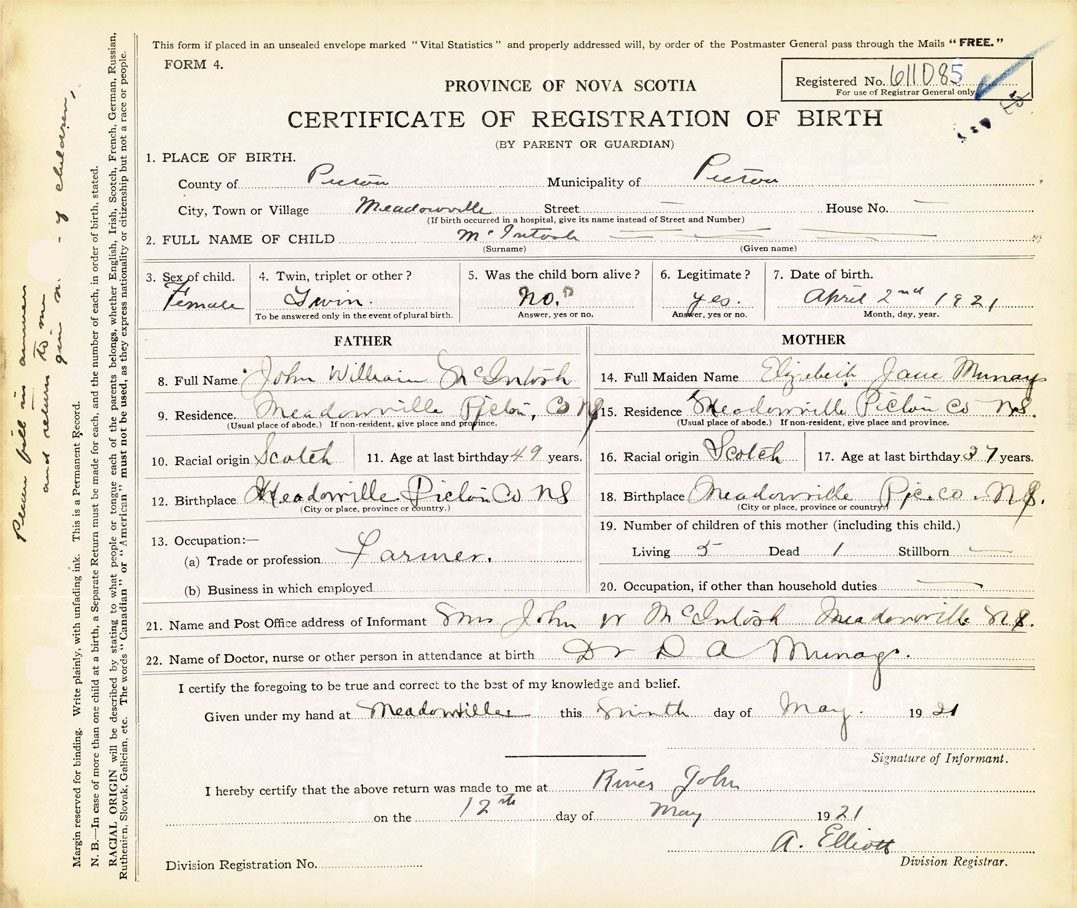 This form if placed in an unsealed envelope marked "Vital Statistics" and properly addressed will, by order of the Postmaster General pass through the Mails "FREE."
FORM 4.
Registered No. 611085
For use of Registrar General only
PROVINCE OF NOVA SCOTIA
CERTIFICATE OF REGISTRATION OF BIRTH
(BY PARENT OR GUARDIAN)
1. PLACE OF BIRTH.
County of Pictou Municipality of Pictou
City, Town or Village Meadowville Street — House No. —
(If birth occurred in a hospital, give its name instead of Street and Number)
2. FULL NAME OF CHILD McIntosh — — — —
(Surname) (Given name)
3. Sex of child. 4. Twin, triplet or other? 5. Was the child born alive? 6. Legitimate? 7. Date of birth.
Female Twin. No. yes. April 2nd 1921
To be answered only in the event of plural birth. Answer, yes or no. Answer, yes or no. Month, day, year.
FATHER MOTHER
8. Full Name John William McIntosh 14. Full Maiden Name Elizabeth Jane Murray
9. Residence. Meadowville Pictou, Co NS 15. Residence Meadowville Pictou Co NS.
(Usual place of abode.) If non-resident, give place and province. (Usual place of abode.) If non-resident, give place and province.
10. Racial origin Scotch 11. Age at last birthday 49 years. 16. Racial origin Scotch 17. Age at last birthday 37 years.
12. Birthplace Meadowville Pictou Co NS 18. Birthplace Meadowville Pic. co. NS.
(City or place, province or country.) (City or place, province or country)
13. Occupation:— 19. Number of children of this mother (including this child.)
(a) Trade or profession Farmer. Living 5 Dead 1 Stillborn —
(b) Business in which employed 20. Occupation, if other than household duties —
21. Name and Post Office address of Informant Mrs John W McIntosh Meadowville NS.
22. Name of Doctor, nurse or other person in attendance at birth Dr D A Murray.
I certify the foregoing to be true and correct to the best of my knowledge and belief.
Given under my hand at Meadowville this Ninth day of May. 1921
Signature of Informant.
I hereby certify that the above return was made to me at River John
on the 12th day of May 1921
A. Elliott
Division Registrar.
Division Registration No.
Please fill in answers
and return to me
given n. - of children,
Margin reserved for binding. Write plainly, with unfading ink. This is a Permanent Record.
N. B.—In case of more than one child at a birth, a Separate Return must be made for each, and the number of each, in order of birth, stated.
RACIAL ORIGIN will be described by stating to what people or tongue each of the parents belongs, whether English, Irish, Scotch, French, German, Russian,
Ruthenien, Slovak, Galician, etc. The words "Canadian" or "American" must not be used, as they express nationality or citizenship but not a race or people.